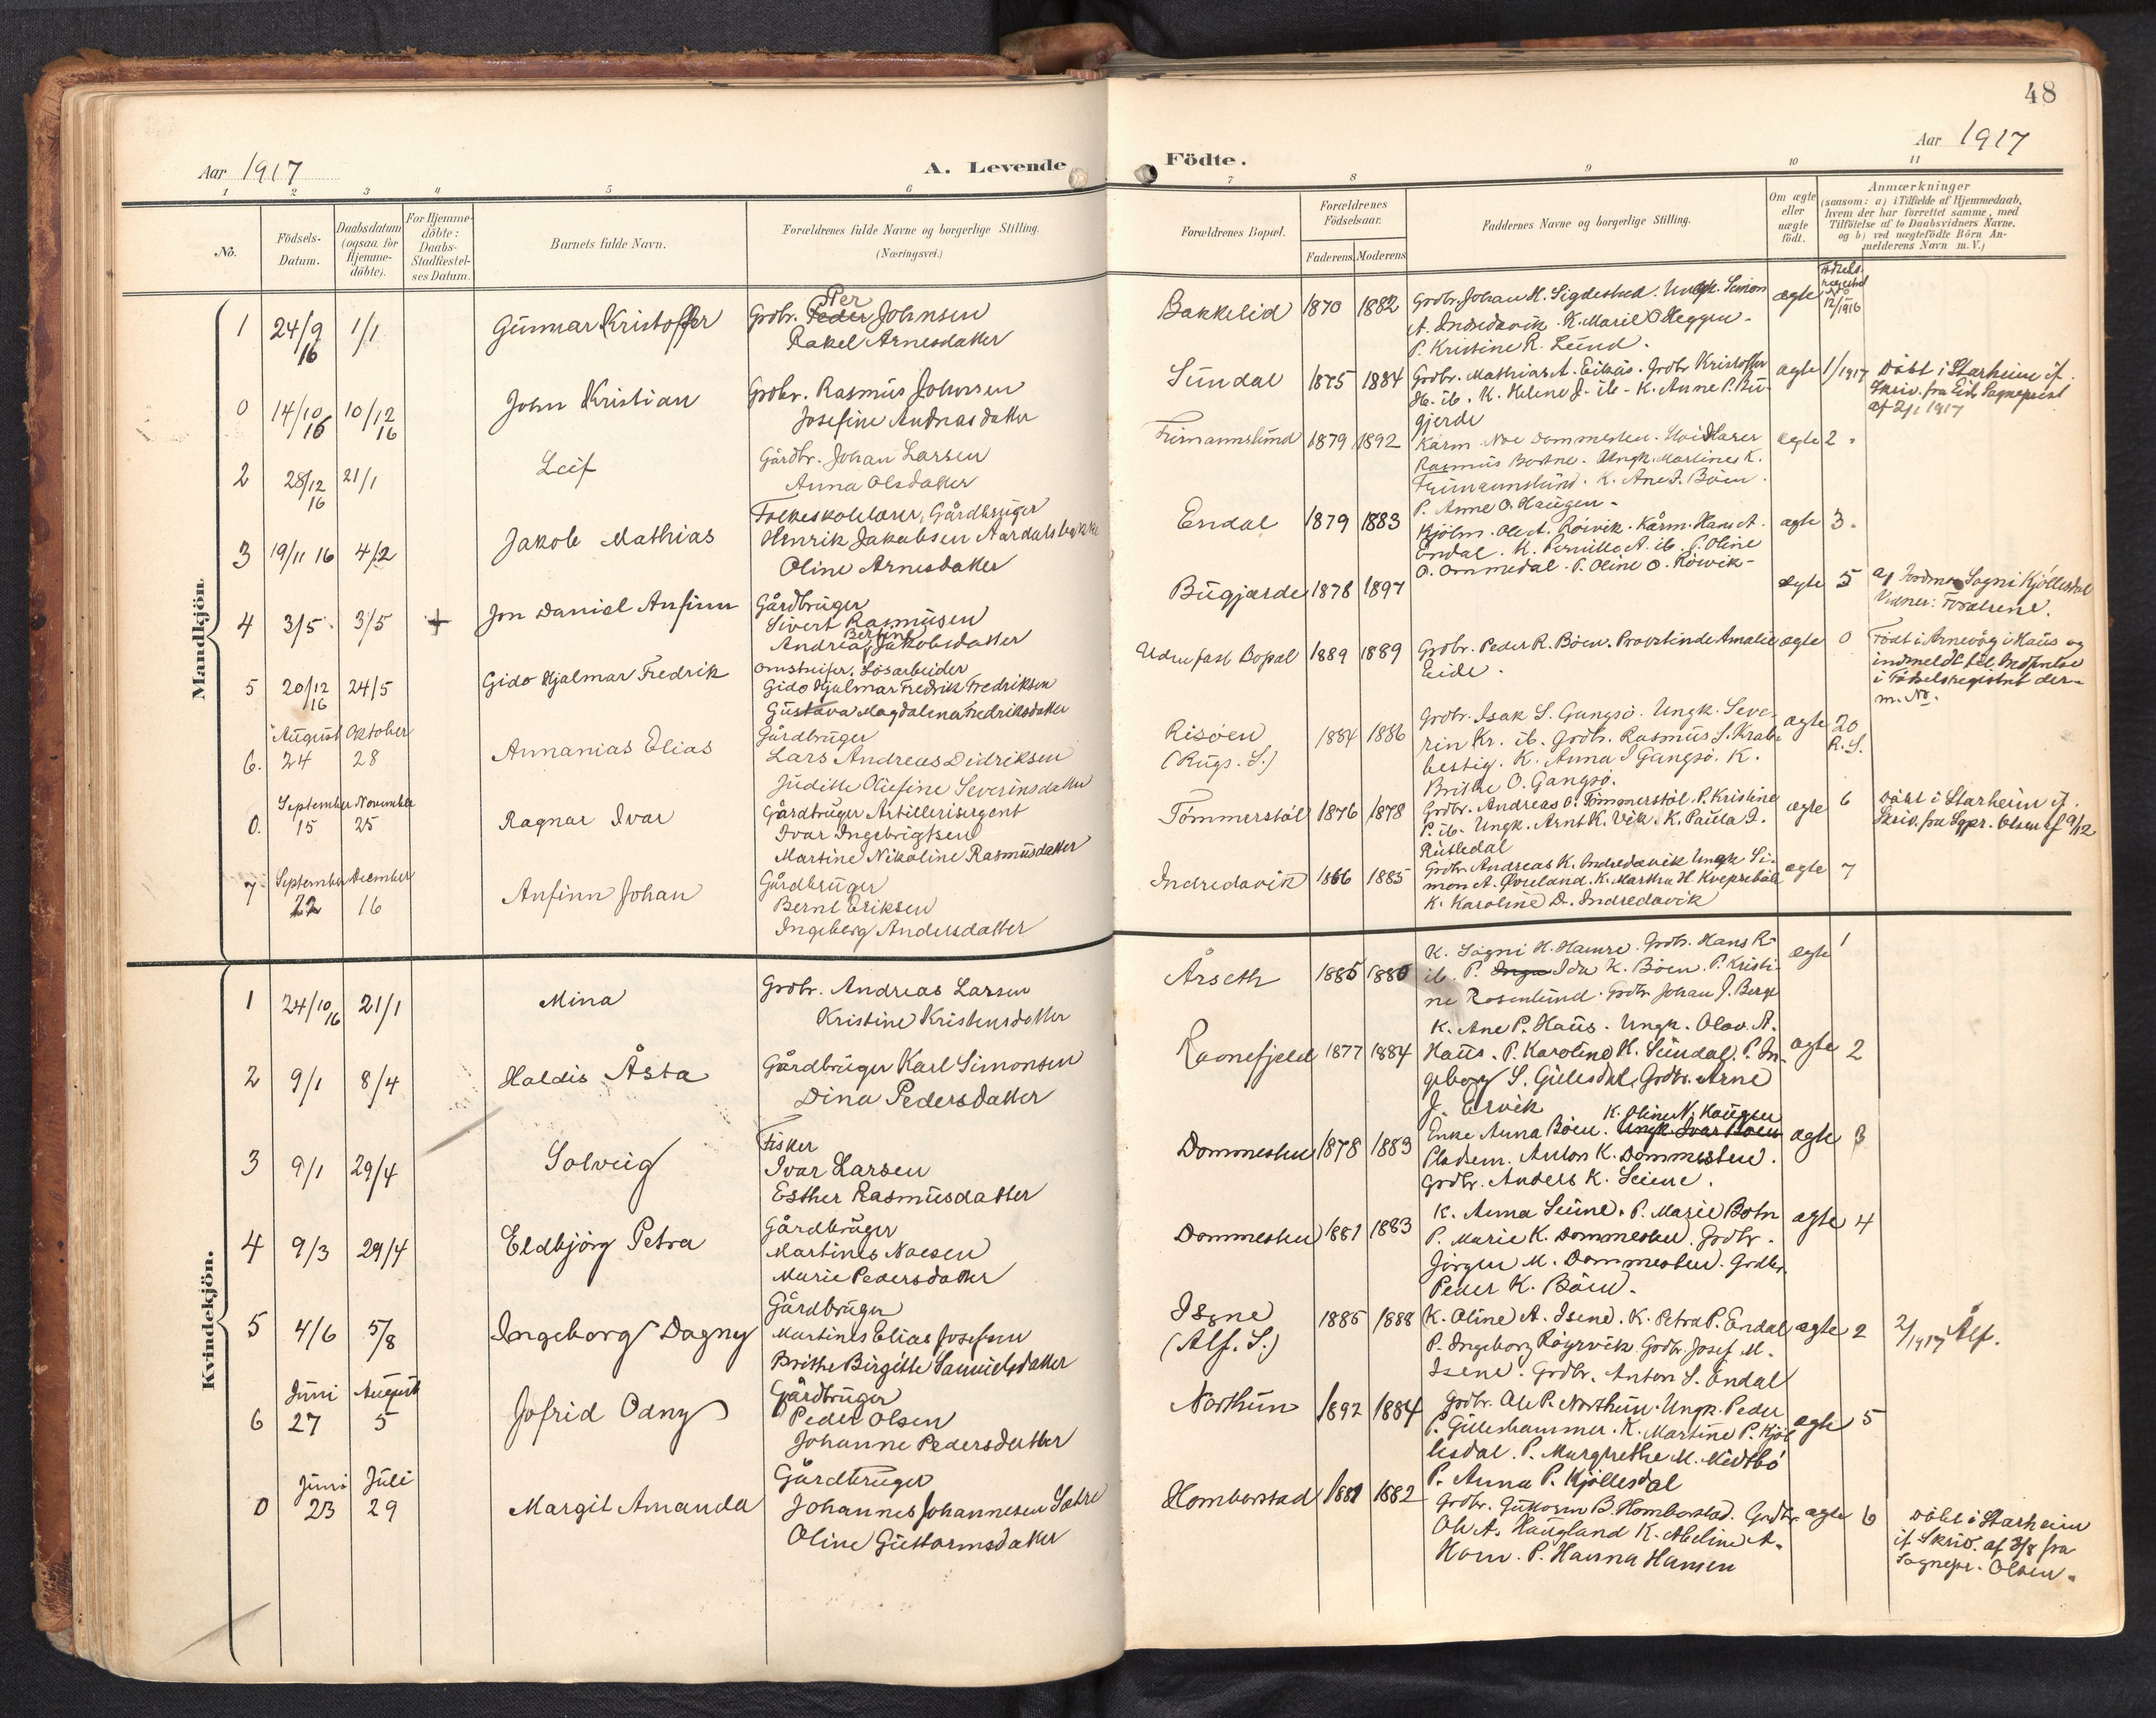 48
Aar 1917
A. Levende
Födte.
Aar 1917
1 2 3 4 5 6
7 8 9 10 11
No.
Födsels-
Datum.
Daabsdatum
(ogsaa for
Hjemme-
döbte).
For Hjemme-
döbte:
Daabs-
Stadfæstel-
ses Datum.
Barnets fulde Navn.
Forældrenes fulde Navne og borgerlige Stilling.
(Næringsvei.)
Forældrenes Bopæl.
Forældrenes
Födselsaar.
Faderens Moderens
Faddernes Navne og borgerlige Stilling.
Om ægte
eller
uægte
födt.
Anmærkninger
(saasom: a) i Tilfælde af Hjemmedaab,
hvem der har forrettet samme, med
Tilföielse af to Daabsvidners Navne,
og b) ved uægtefödte Börn An-
melderens Navn m. V.)
Mandkjön.
1 24/9 16 1/1 Gunnar Kristoffer
Per
Grdbr. Peder Johnsen
Rakel Arnesdatter
Bakkelid 1870 1882
Grdbr. Johan H. Sigdestad. Ungk. Simon
A. Indredavik. K. Marie O Heggen.
P. Kristine R. Lund.
ægte
Födsels-
No
12/1916
0 14/10 16 10/12 16 John Kristian
Grdbr. Rasmus Johnsen
Josefine Andreasdatter
Sundal 1875 1884
Grdbr. Mathias A. Eikås. Grdbr Kristoffer
H. ib. K. Helene J. ib - K. Anne P. Bu-
gjerde
ægte 1/1917 Döbt i Starheim if.
Skriv. fra Eids Sogneprest
af 2/1 1917
2 28/12 16 21/1 Leif
Gårdbr. Johan Larsen
Anna Olsdatter
1879 1892
Kårm Noe Dommesten.
Rasmus Botne. Ungk. Martines K.
K. Ane J. Böen.
P. Anne O. Haugen.
ægte 2
3 19/11 16 4/2 Jakob Mathias
Folkeskolelærer, Gårdbruger
Henrik Jakobsen Aardalsbakke
Oline Arnesdatter
Endal 1879 1883
Ole A. Röivik. Kårm. Hans A.
Endal. K. Pernille A. ib. P. Oline
O. Ommedal. P. Oline O. Röivik
ægte 3.
4 3/5 3/5 + Jon Daniel Anfinn
Gårdbruger
Sivert Rasmusen
Andrea Bertine Jakobsdatter
Bugjærde 1878 1897
ægte 5 af Jordm. Sogni Kjöllesdal
Vidner: Forældrene.
5 20/12 16 24/5 Gido Hjalmar Fredrik
Omstreifer, Lösarbeider
Gido Hjalmar Fredrik Fredriksen
Gustava Magdalena Fredriksdatter
Uden fast Bopæl 1889 1889
Grdbr. Peder R. Böen. Provstinde Amalie
Eide.
ægte 0 Födt i Arnevåg i Haus og
indmeldt
i Födselsregistret der-
m. No.
August Oktober
6. 24 28 Annanias Elias
Gårdbruger
Lars Andreas Didriksen
Judithe Olefine Severinsdatter
Risöen
(Rugs. S.) 1884 1886
Grdbr. Isak S. Gangsö. Ungk. Seve-
rin Kr. ib. Grdbr. Rasmus S. Krab-
bestig. K. Anna I Gangsö. K.
Brithe O. Gangsö.
ægte 20
R. S.
September November
0. 15 25 Ragnar Ivar
Gårdbruger Artillerisergent
Ivar Ingebrigtsen
Martine Nikoline Rasmusdatter
Tömmerstöl 1876 1878
Grdbr. Andreas O. Tömmerstöl. P. Kristine
P. ib. Ungk. Arnt K. Vik. K. Paula I.
Rutledal
ægte 6 Döbt i Starheim if.
Skriv. fra Spr. Olsen af 9/12
September December
7 22 16 Anfinn Johan
Gårdbruger
Bernt Eriksen
Ingeborg Andersdatter
Indredavik 1866 1885
Grdbr. Andreas K. Indredavik Ungk Si-
mon A. K. Martha H
K. Karoline D. Indredavik
ægte 7
Kvindekjön.
1 24/10 16 21/1 Mina
Grdbr. Andreas Larsen
Kristine Kristensdatter
Årseth 1885 1880
K. Sogni H. Hamre. Grdbr. Hans R.
ib. P. Inga Ida K. Böen. P. Kristi-
ne Rosenlund. Grdbr Johan J. Berge
ægte 1
2 9/1 8/4 Haldis Åsta
Gårdbruger Karl Simonsen
Dina Pedersdatter
Ravnefjeld 1877 1884
K. Ane P. Haus. Ungk. Olav A.
Haus. P. Karoline K. Sundal. P. In-
geborg S. Gullesdal, Grdbr. Arne
J. Ervik
ægte 2
3 9/1 29/4 Solveig
Fisker
Ivar Larsen
Esther Rasmusdatter
Dommesten 1878 1883
K. Oline N. Haugen
Enke Anna Böen. Ungk. Ivar Böen
Pladsem. Anton K. Dommesten.
Grdbr. Anders K. Leine.
ægte 3
4 9/3 29/4 Eldbjörg Petra
Gårdbruger
Martines Noesen
Marie Pedersdatter
Dommesten 1881 1883
K. Anna Leine. P. Marie Botn
P. Marie K. Dommesten. Grdbr.
Jörgen M. Dommesten. Grdbr.
Peder K. Böen.
ægte 4
5 4/6 5/8 Ingeborg Dagny
Gårdbruger
Martines Elias Josefsen
Brithe Birgitte Samuelsdatter
Isene
(Alf. S.) 1885 1888
K. Oline A. Isene. K. Petra P. Endal
P. Ingeborg Röyrvik. Grdbr. Josef M.
Isene. Grdbr. Anton S. Endal
ægte 2 2/1917 Alf.
Juni August
6 27 5 Jofrid Odny
Gårdbruger
Peder Olsen
Johanne Pedersdatter
Northun 1892 1884
Grdbr. Ole P. Northun. Ungk. Peder
P. Gulleshammer. K. Martine P. Kjöl-
lesdal. P. Margrethe M. Midtbö
P. Anna P. Kjöllesdal
ægte 5
Juni Juli
0 23 29 Margit Amanda
Gårdbruger
Johannes Johannesen Sætre
Oline Guttormsdatter
Homborstad 1881 1882
Grdbr. Guttorm B. Homborstad. Grdbr.
Ole A. Haugland K. Abeline A.
Horn. P. Hanna Hansen
ægte 6 Döbt i Starheim
if. Skriv. af 3/8 fra
Sognepr. Olsen.